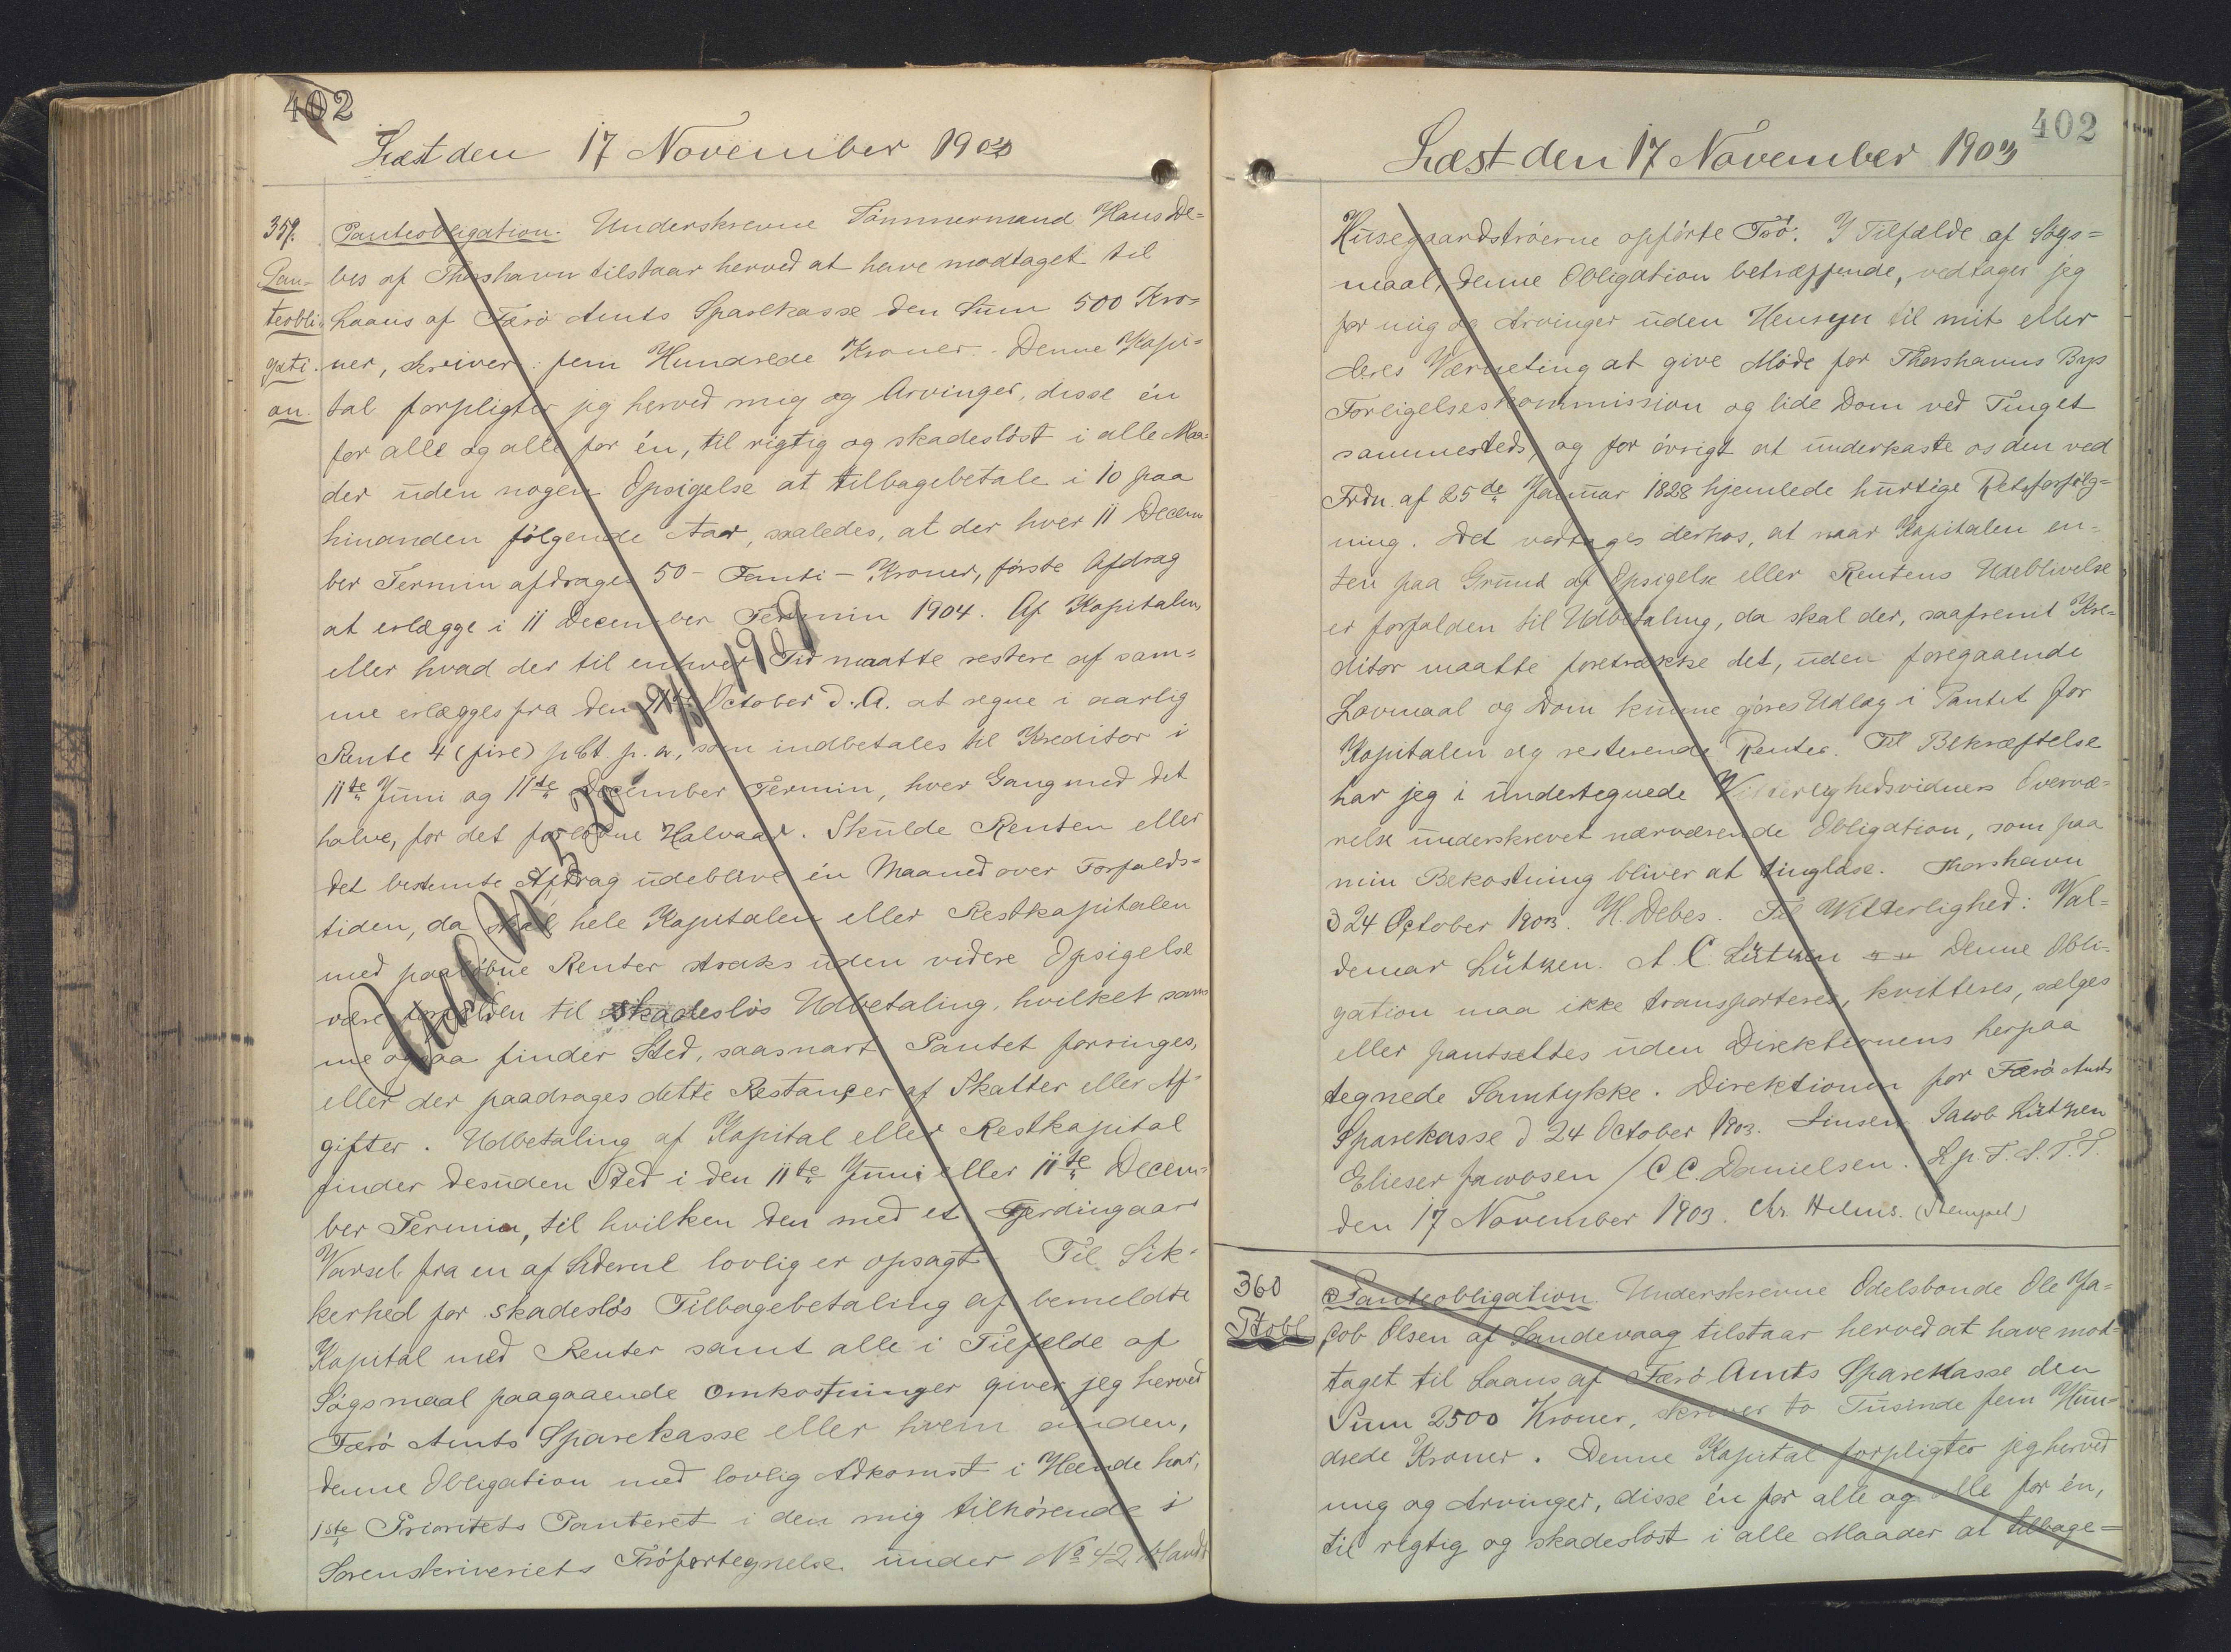 402
Læst den 17 November 1903
359.
Pan-
teobli-
gati-
on.
Panteobligation. Underskrevne Tömmermand Hans De=
bes af Thorshavn tilstaar herved at have modtaget til
Laans af Færö Amts Sparekasse den Sum 500 Kro=
ner, skriver: fem Hundrede Kroner. Denne Kapi=
tal forpligter jeg herved mig og Arvinger, disse én
for alle og alle for én, til rigtig og skadeslöst i alle Maa=
der uden nogen Opsigelse at tilbagebetale i 10 paa
hinanden fölgende Aar, saaledes, at der hver 11 Decem
ber Termin afdrages 50 - Femti - Kroner, förste Afdrag
at erlægge i 11 December Termin 1904. Af Kapitalen,
eller hvad der til enhver Tid maatte restere af sam=
me erlægges fra den October d. A. at regne i aarlig
Rente 4 (fire) pCt p. a., som indbetales til Kreditor i
11te Juni og 11te December Termin, hver Gang med det
halve, for det forlöbne Halvaar. Skulde Renten eller
det bestemte Afdrag udeblive én Maaned over Forfalds=
tiden, da skal hele Kapitalen eller Restkapitalen
med paalöbne Renter straks uden videre Opsigelse
være forfalden til skadeslös Udbetaling, hvilket sam
me ogsaa finder Sted, saasnart Pantet forringes,
eller der paadrages dette Restancer af Skatter eller Af=
gifter. Udbetaling af Kapital eller Restkapital
finder desuden Sted i den 11te Juni eller 11te Decem=
ber Termin, til hvilken den med et Fjerdingaars
Varsel fra en af Siderne lovlig er opsagt. Til Sik=
kerhed for skadeslös Tilbagebetaling af bemeldte
Kapital med Renter samt alle i Tilfælde af
Sögsmaal paagaaende Omkostninger giver jeg herved
Færö Amts Sparekasse eller hvem anden,
denne Obligation med lovlig Adkomst i Hænde har,
1ste Prioritets Panteret i den mig tilhörende i
Sorenskriveriets Tröfortegnelse under No 42
402
Læst den 17 November 1903
Husegaardströerne opförte Trö. I Tilfælde af Sögs=
maal, denne Obligation betræffende, vedtager jeg
for mig og Arvinger uden Hensyn til mit eller
deres Værneting at give Möde for Thorshavns Bys
Forligelseskommission og lide Dom ved Tinget
sammesteds, og for övrigt at underkaste os den ved
Frdn. af 25de Januar 1828 hjemlede hurtige Retsforfölg=
ning. Det vedtages derhos, at naar Kapitalen en=
ten paa Grund af Opsigelse eller Rentens Udeblivelse
er forfalden til Udbetaling, da skal der, saafremt Kre=
ditor maatte foretrække det, uden foregaaende
Lovmaal og Dom kunne gjöres Udlæg i Pantet for
Kapitalen og resterende Renter. Til Bekræftelse
har jeg i undertegnede Vitterlighedsvidners Overvæ=
relse underskrevet nærværende Obligation, som paa
min Bekostning bliver at tinglæse. Thorshavn
d 24 October 1903. H. Debes. Til Vitterlighed: Val=
demar Lützen. A. C. Lützen Denne Obli=
gation maa ikke transporteres, kvitteres, sælges
eller pantsættes uden Direktionens herpaa
tegnede Samtykke. Direktionen for Færö Amts
Sparekasse d 24 October 1903. Linsen Jacob Lützen
Elieser Jacobsen / C. C. Danielsen. L. p. F. S. T. T.
den 17 November 1903. Chr. Helms. (Stempel)
360
Ptobl
Panteobligation. Underskrevne Odelsbonde Ole Ja=
cob Olsen af Sandevaag tilstaar herved at have mod=
taget til Laans af Færö Amts Sparekasse den
Sum 2500 Kroner, skriver to Tusinde fem Hun=
drede Kroner. Denne Kapital forpligter jeg herved
mig og Arvinger, disse én for alle og alle for én,
til rigtig og skadeslöst i alle Maader at tilbage=